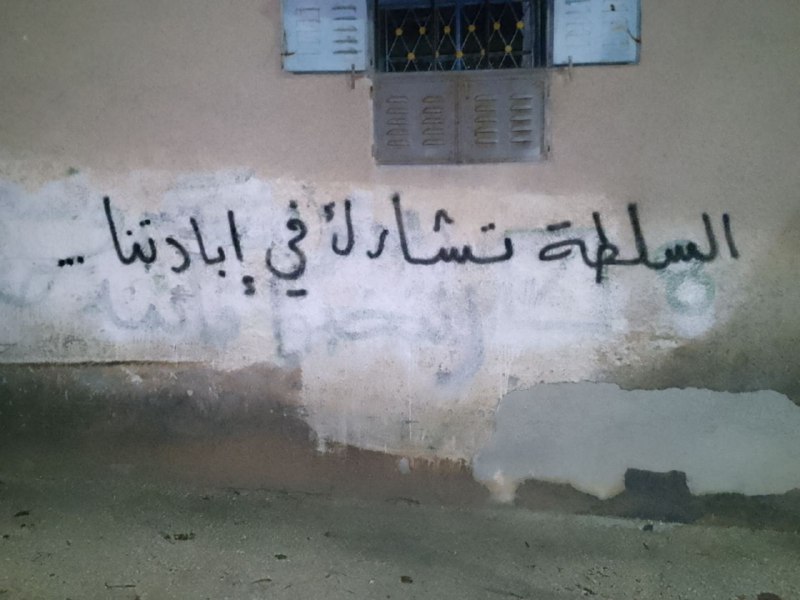 السلطة تشارك في إبادتنا ...